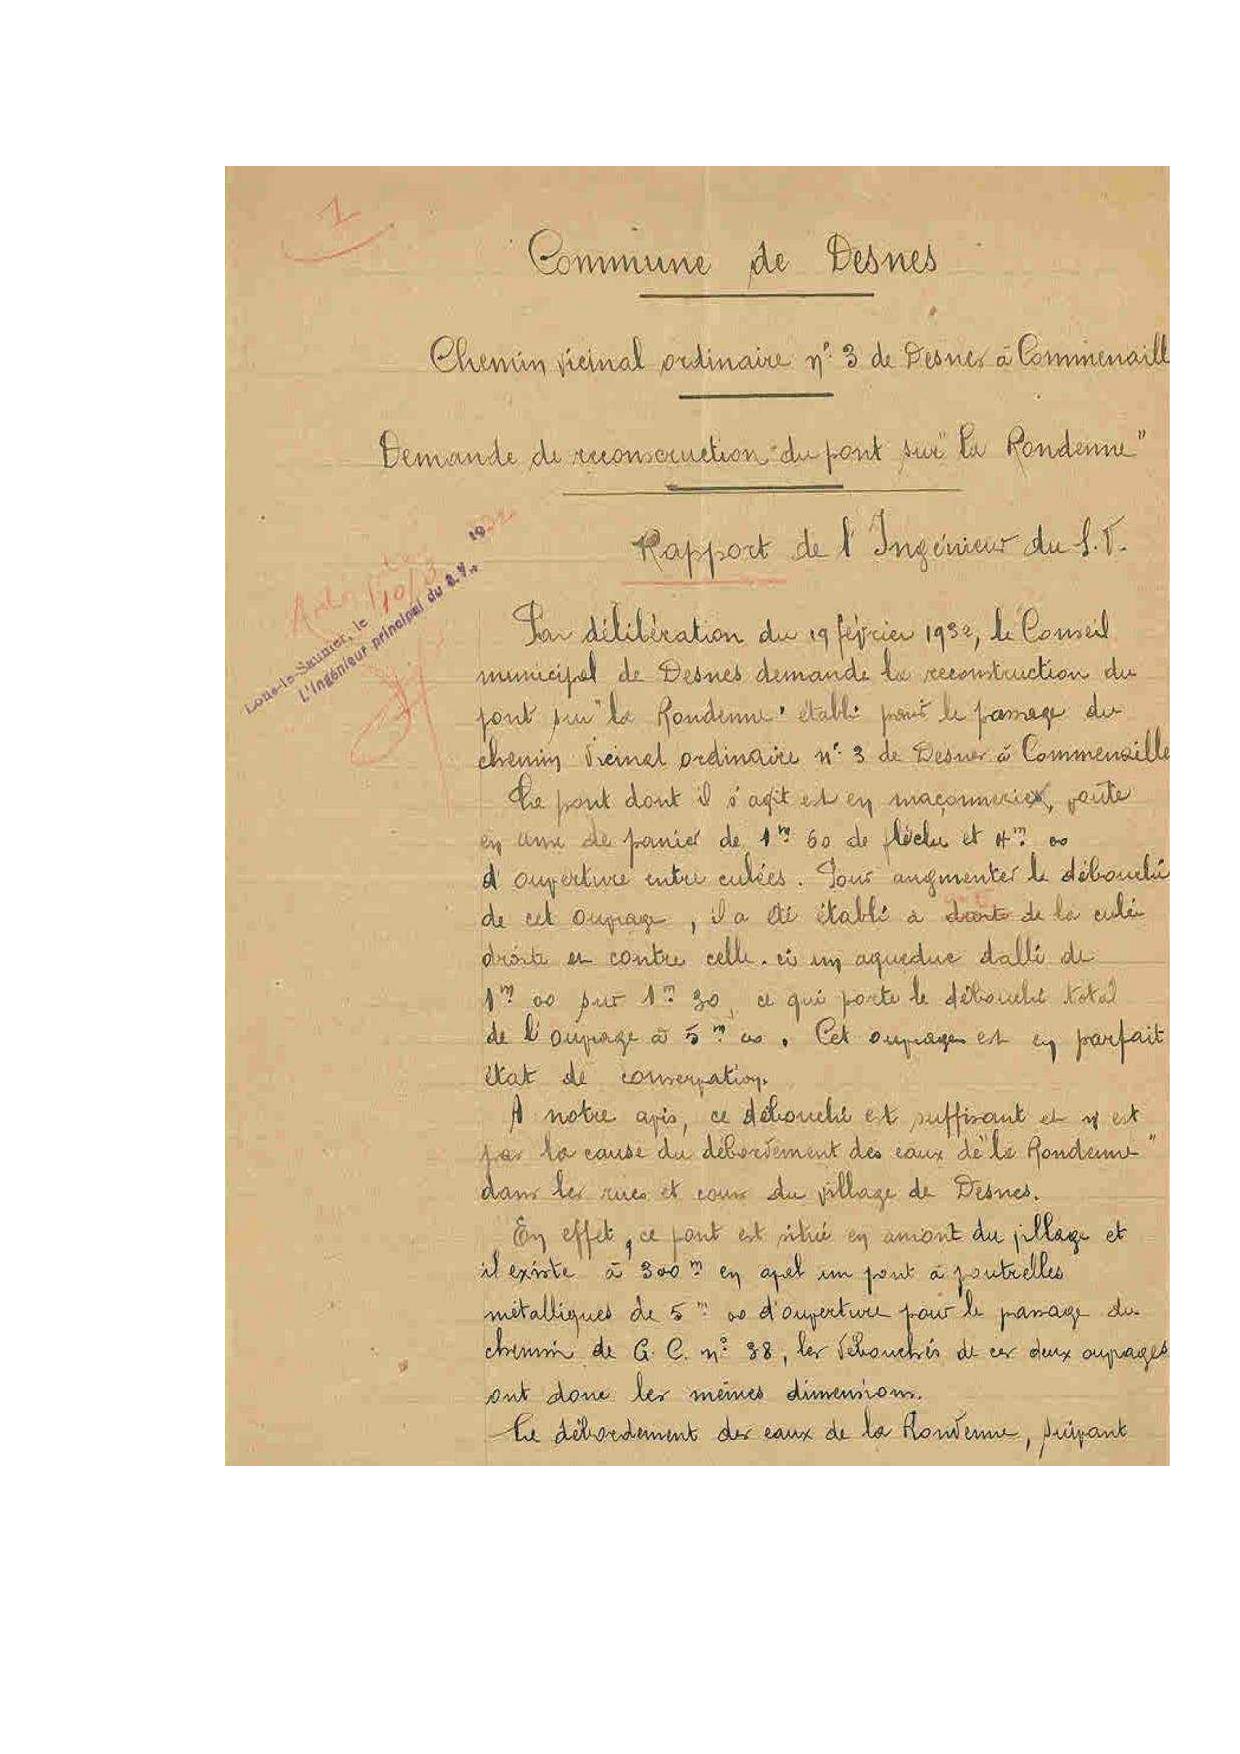 1
Commune de Desnes
Chemin vicinal ordinaire n° 3 de Desnes à Commenaill
Demande de reconstruction du pont sur "la Rondenne"
Rapport de l'Ingénieur du S.V.
Lons-le-Saunier, le 10/3 1932
L'Ingénieur principal du S.V.,
Par délibération du 19 février 1932, le Conseil
municipal de Desnes demande la reconstruction du
pont sur "la Rondenne" établi pour le passage du
chemin vicinal ordinaire n° 3 de Desnes à Commenaille
Le pont dont il s'agit est en maçonnerie, voûte
en anse de panier de 1m 60 de flèche et 4m 00
d'ouverture entre culées. Pour augmenter le débouché
de cet ouvrage, il a été établi à de la culée
droite et contre celle-ci un aqueduc dallé de
1m 00 sur 1m 30, ce qui porte le débouché total
de l'ouvrage à 5m 00. Cet ouvrage est en parfait
état de conservation.
A notre avis, ce débouché est suffisant et n'est
pas la cause du débordement des eaux de "la Rondenne"
dans les rues et cours du village de Desnes.
En effet, ce pont est situé en amont du village et
il existe à 300m en aval un pont à poutrelles
métalliques de 5m 00 d'ouverture pour le passage du
chemin de G.C. n° 38, les débouchés de ces deux ouvrages
ont donc les mêmes dimensions.
Le débordement des eaux de la Rondenne, suivant